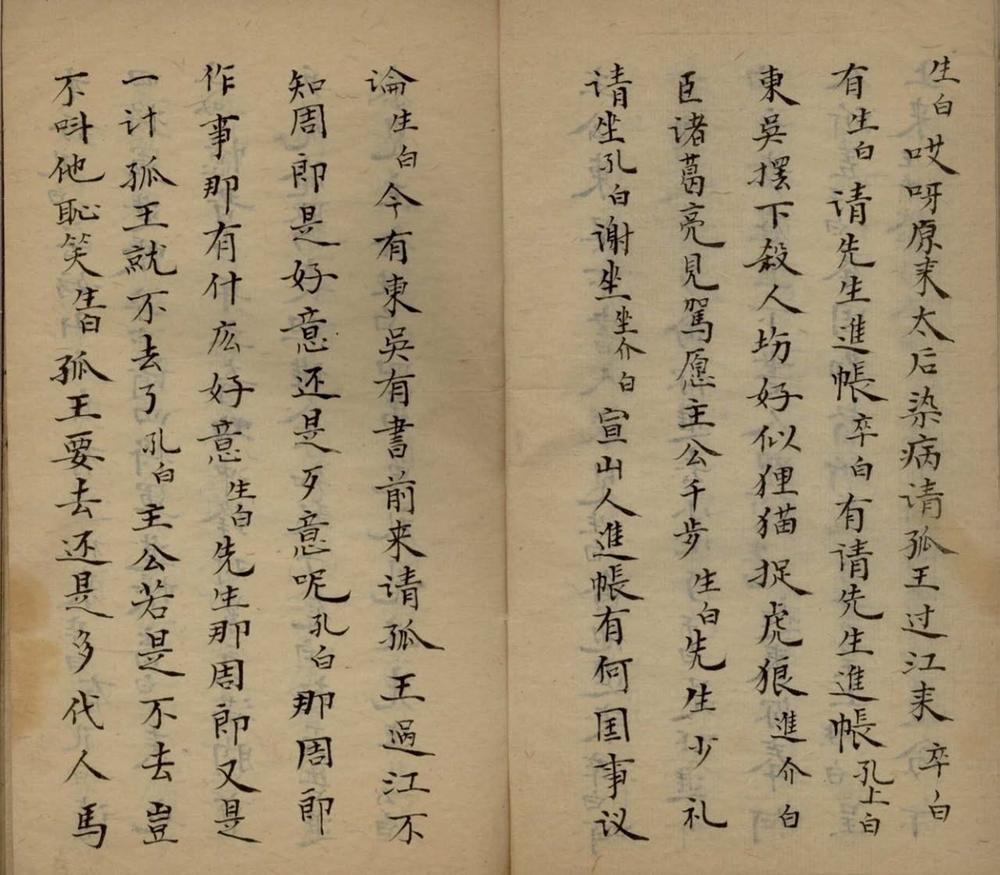 生白哎呀原来太后染病请孤王过江来卒白
有生白请先生進帳卒白有请先生進帳孔上白
東吳擺下殺人坊好似狸猫捉虎狼進介白
臣诸葛亮見駕愿主公千步生白先生少礼
请坐孔白谢坐坐介白宣山人進帳有何国事议
论生白今有東吳有書前来请孤王過江不
知周郎是好意还是歹意呢孔白那周郎
作事那有什庅好意生白先生那周郎又是
一计孤王就不去了孔白主公若是不去豈
不呌他恥笑生白孤王要去还是多代人馬